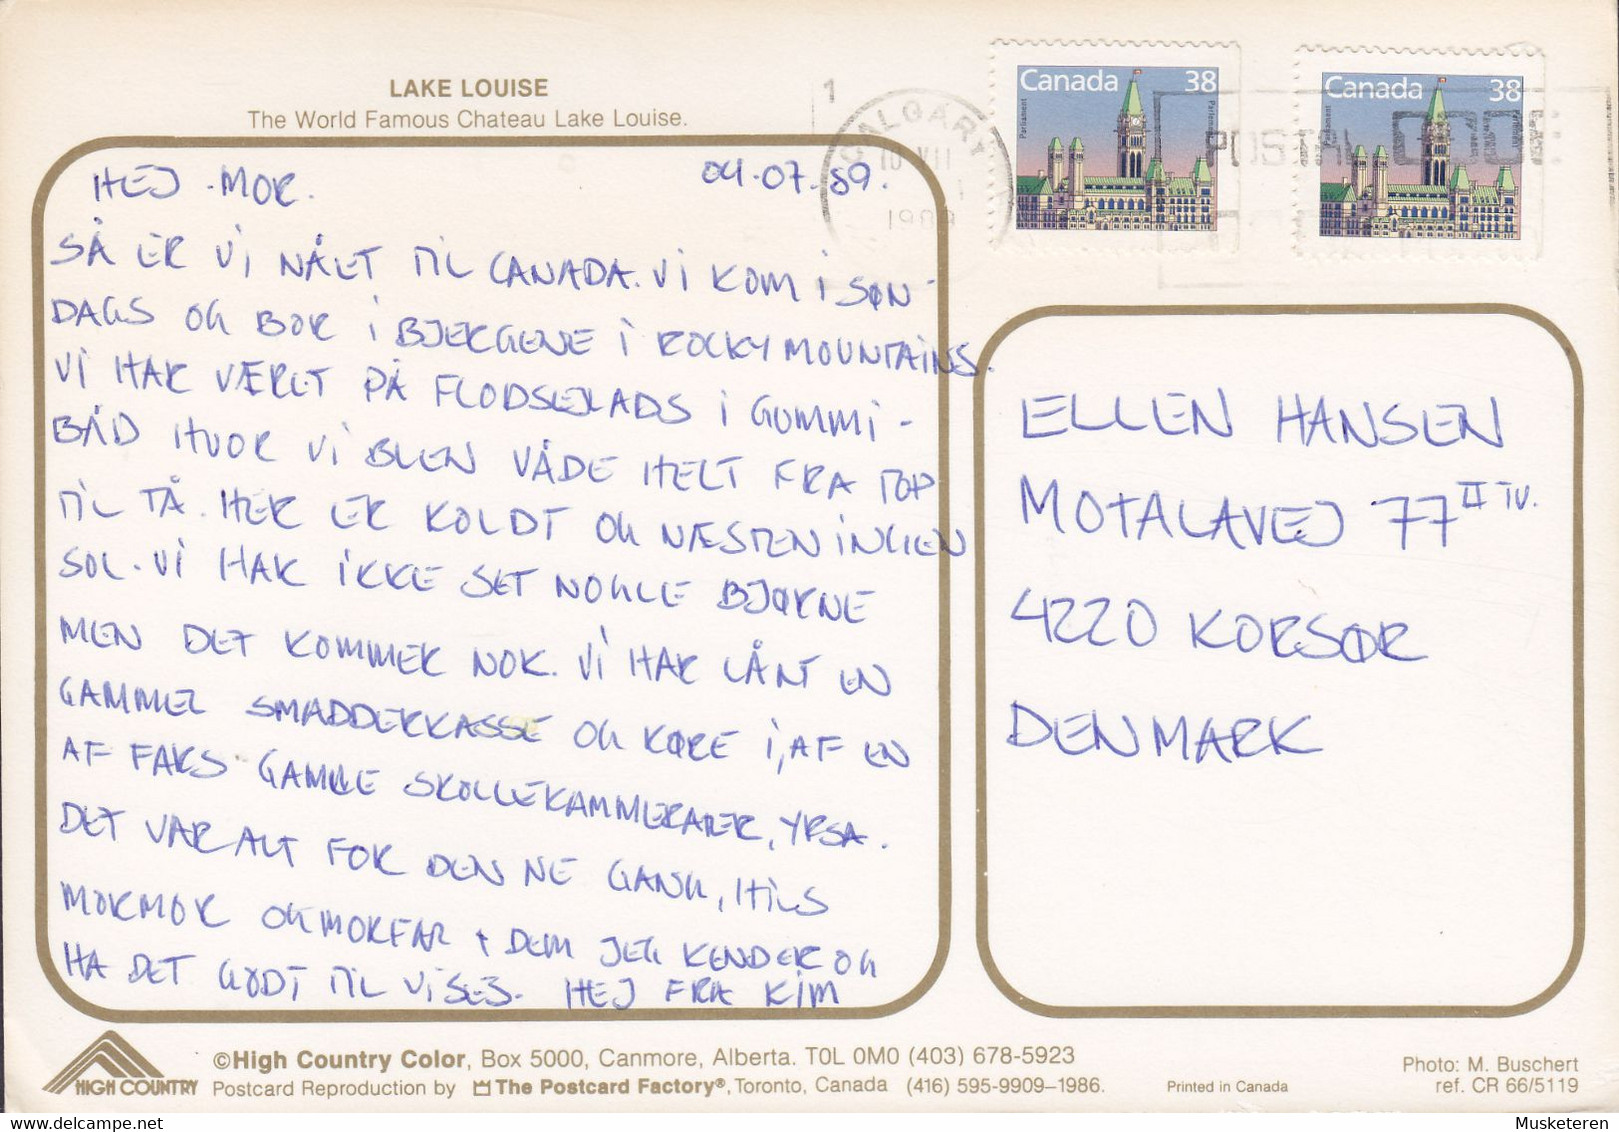 LAKE LOUISE
The World Famous Chateau Lake Louise.
HEJ MOR. 04.07.89.
SÅ ER VI NÅET TIL CANADA. VI KOM I SØN-
DAGS OG BOR I BJERGENE I ROCKY MOUNTAINS.
VI HAR VÆRET PÅ FLODSEJLADS I GUMMI-
BÅD HVOR VI BLEV VÅDE HELT FRA TOP
TIL TÅ. HER ER KOLDT OG NÆSTEN INGEN
SOL. VI HAR IKKE SET NOGLE BJØRNE
MEN DET KOMMER NOK. VI HAR LÅNT EN
GAMMEL SMADDERKASSE OG KØRE I, AF EN
AF FARS GAMLE SKOLLEKAMMERATER, YRSA.
DET VAR ALT FOR DEN NE GANG, HILS
MORMOR OG MORFAR + DEM JEG KENDER OG
HA DET GODT TIL VI SES. HEJ FRA KIM
1
CALGARY
10 VII
1989
Canada 38
Parliament
Parlement
Canada 38
Parliament
Parlement
POSTAL CODE
ELLEN HANSEN
MOTALAVEJ 77 II TV.
4220 KORSØR
DENMARK
HIGH COUNTRY
©High Country Color, Box 5000, Canmore, Alberta. T0L 0M0 (403) 678-5923
Postcard Reproduction by The Postcard Factory®, Toronto, Canada (416) 595-9909–1986.
Printed in Canada
Photo: M. Buschert
ref. CR 66/5119
Musketeren